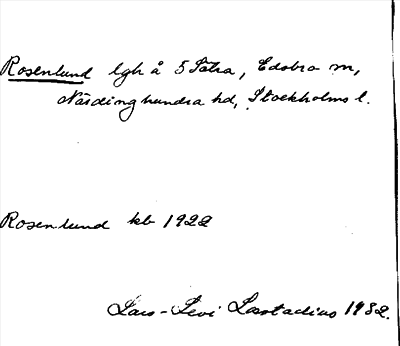 Rosenlund lgh å 5 Sätra, Edsbro sn,
Närdinghundra hd, Stockholms l.
Rosenlund kb 1922
Lars-Levi Læstadius 1982.